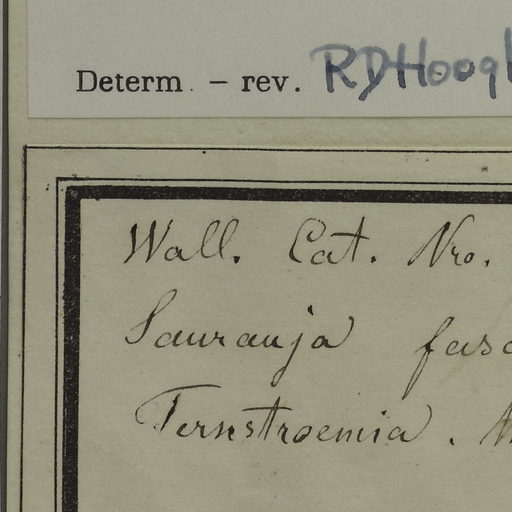 Determ. – rev. RDHoogl
Wall. Cat. Nro.
Saurauja fasc
Ternstroemia.